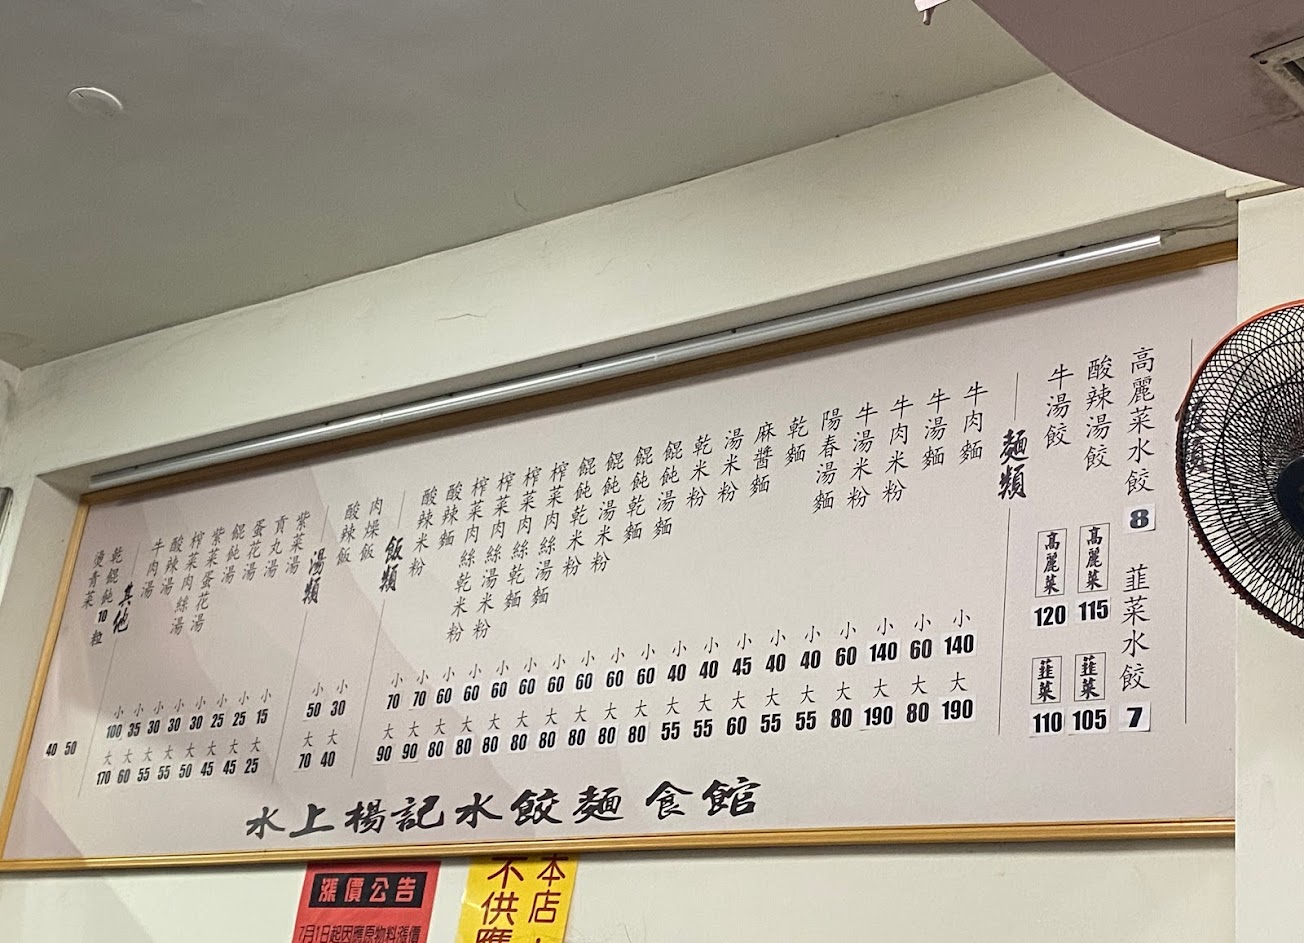 高麗菜水餃 8 韮菜水餃 7
酸辣湯餃 高麗菜 115 韮菜 105
牛湯餃 高麗菜 120 韮菜 110
麵類
牛肉麵 小 140 大 190
牛湯麵 小 60 大 80
牛肉米粉 小 140 大 190
牛湯米粉 小 60 大 80
陽春湯麵 小 40 大 55
乾麵 小 40 大 55
麻醬麵 小 45 大 60
湯米粉 小 40 大 55
乾米粉 小 40 大 55
餛飩湯麵 小 60 大 80
餛飩乾麵 小 60 大 80
餛飩湯米粉 小 60 大 80
餛飩乾米粉 小 60 大 80
榨菜肉絲湯麵 小 60 大 80
榨菜肉絲乾麵 小 60 大 80
榨菜肉絲湯米粉 小 60 大 80
榨菜肉絲乾米粉 小 60 大 80
酸辣麵 小 70 大 90
酸辣米粉 小 70 大 90
飯類
肉燥飯 小 30 大 40
酸辣飯 小 50 大 70
湯類
紫菜湯 小 15 大 25
貢丸湯 小 25 大 45
蛋花湯 小 25 大 45
餛飩湯 小 30 大 50
紫菜蛋花湯 小 30 大 55
榨菜肉絲湯 小 30 大 55
酸辣湯 小 35 大 60
牛肉湯 小 100 大 170
其他
乾餛飩10粒 50
燙青菜 40
水上楊記水餃麵食館
漲價公告
7月1日起因應原物料漲價
本店
不供應